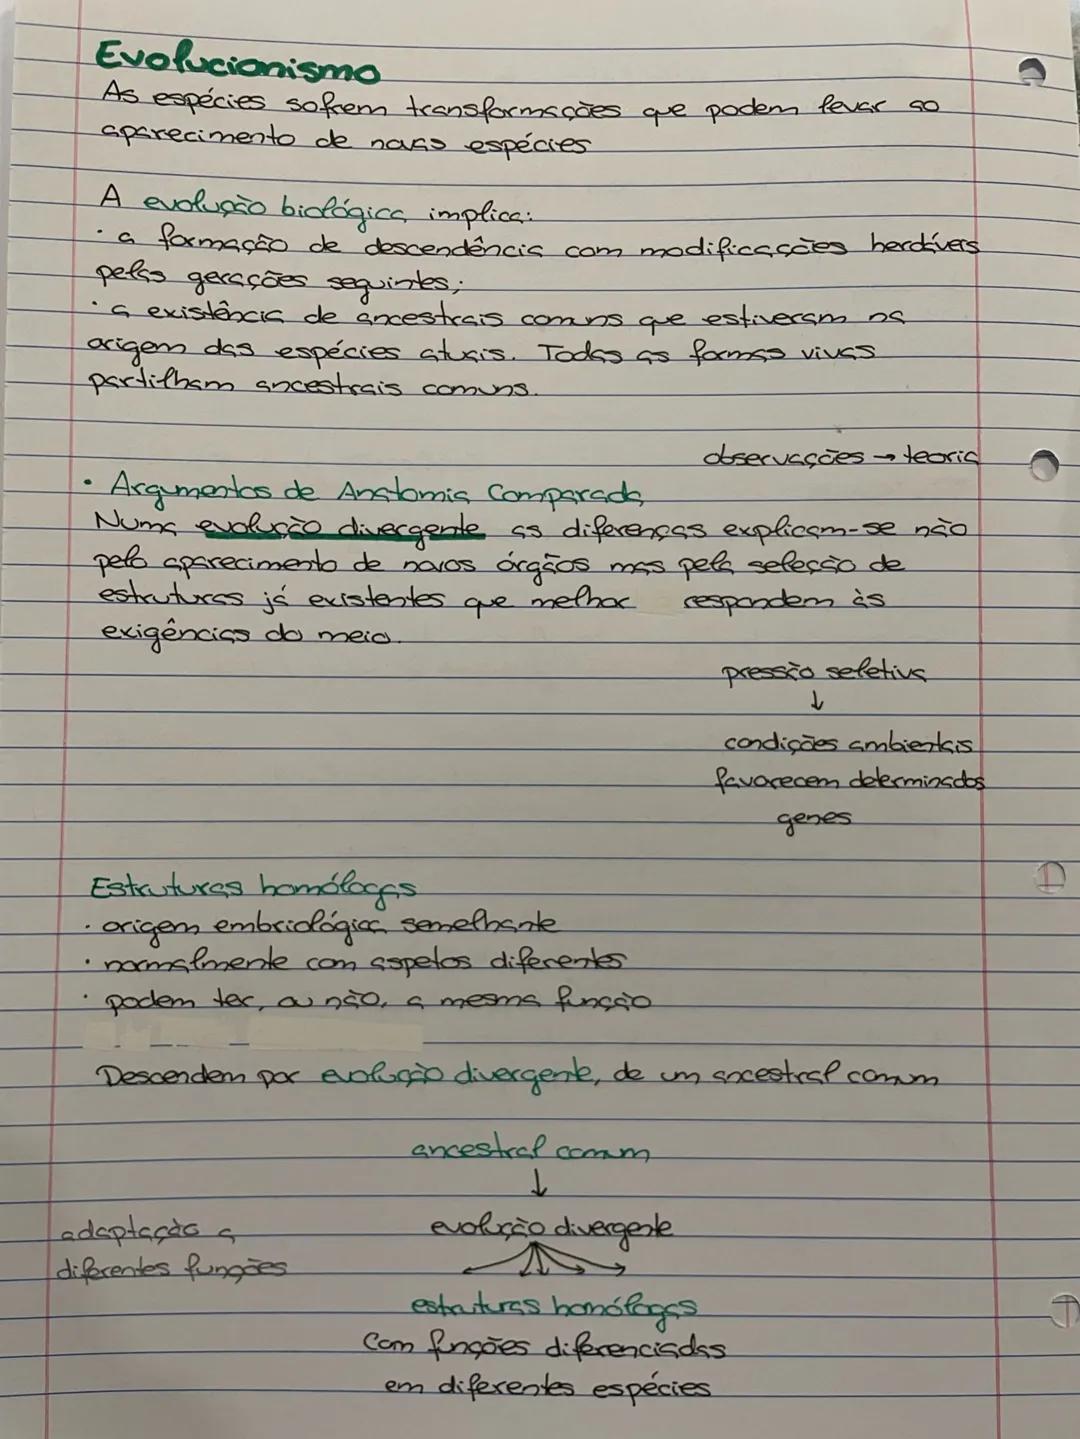 Evolucionismo
As espécies sofrem transformações que podem levar ao
aparecimento de novas espécies
A evolução biológica implica:
· a formação de descendência com modificações herdáveis
pelas gerações seguintes;
· a existência de ancestrais comuns que estiveram na
origem das espécies atuais. Todas as formas vivas
partilham ancestrais comuns.
observações → teoria
· Argumentos de Anatomia Comparada
Numa evolução divergente as diferenças explicam-se não
pelo aparecimento de novos órgãos mas pela seleção de
estruturas já existentes que melhor respondem às
exigências do meio.
pressão seletiva
↓
condições ambientais
favorecem determinados
genes
Estruturas homólogas
· origem embriológica semelhante
· normalmente com aspetos diferentes
· podem ter, ou não, a mesma função
Descendem por evolução divergente, de um ancestral comum
ancestral comum
↓
evolução divergente
adaptação a
diferentes funções
estruturas homólogas
Com funções diferenciadas
em diferentes espécies